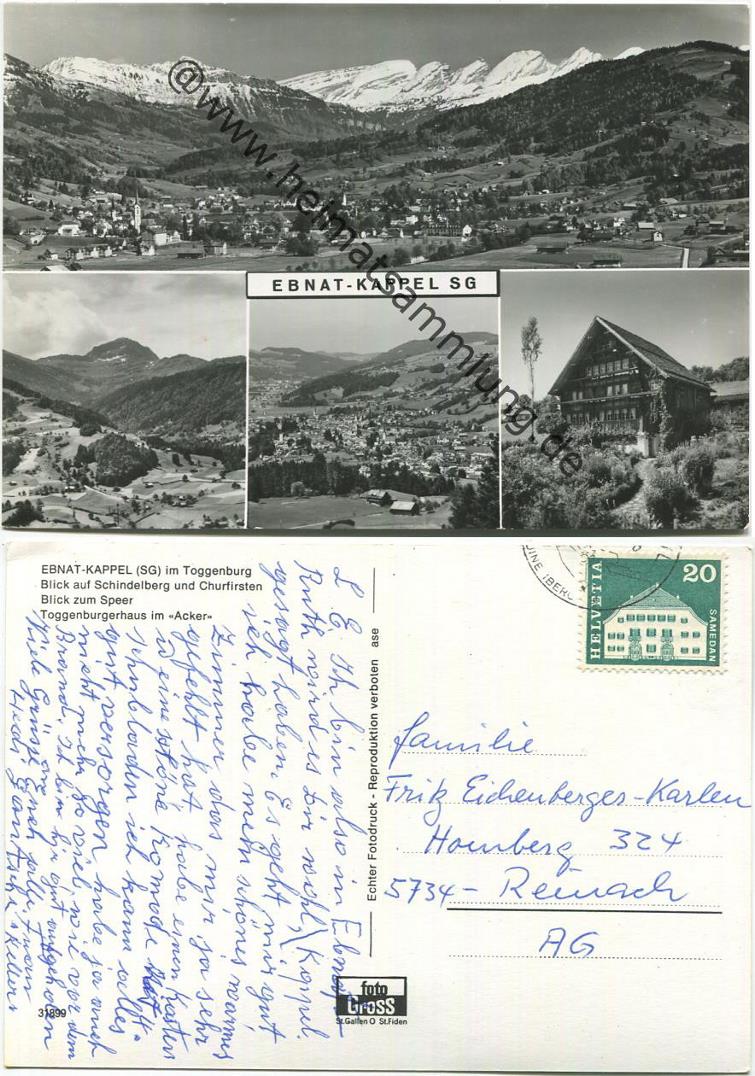 @www.heimatsammlung.de
EBNAT-KAPPEL SG
EBNAT-KAPPEL (SG) im Toggenburg
Blick auf Schindelberg und Churfirsten
Blick zum Speer
Toggenburgerhaus im «Acker»
L E Ich bin also in Ebnat-
Kappel.
Ruth wird es dir wohl
gesagt haben. Es geht mir gut,
ich habe mein schönes warmes
Zimmer das mir ja sehr
gefehlt hat habe einen Kasten
u eine schöne Komode mit 4
Schubladen ich kann alles
gut versorgen habe ja auch
nicht mehr so viel wie vor dem
Brand. Ich bin hier gut aufgehoben
Viele Grüsse Euch allen von
Hedi
31899
Echter Fotodruck - Reproduktion verboten ase
foto
Gross
St.Gallen O St.Fiden
HELVETIA
20
SAMEDAN
Familie
Fritz Eichenberger-Karlen
Homberg 324
5734 - Reinach
AG